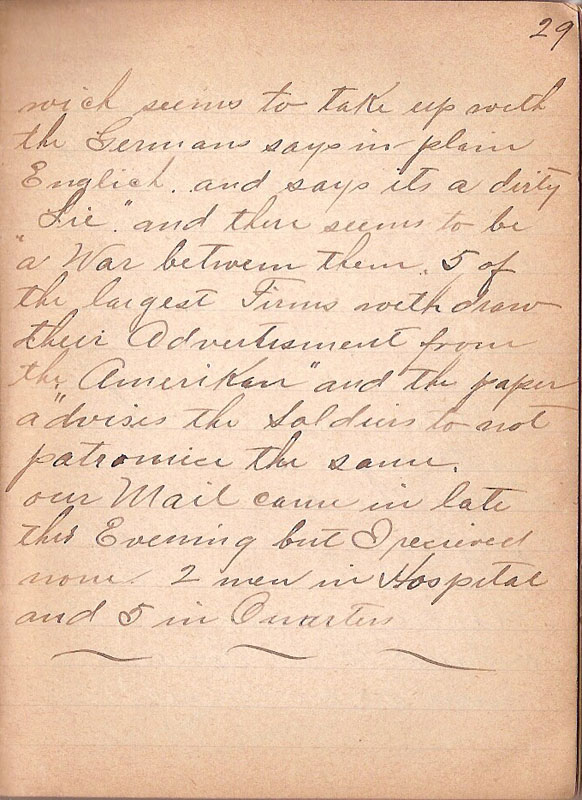 29
wich seems to take up with
the Germans says in plain
Englich. and says its a dirty
Lie." and there seems to be
"a War betweem them. 5 of
the largest Firms withdraw
their Advertisment from
the "Amerikan" and the paper
advises the Soldiers to not
patromice the same.
our Mail came in late
this Evening but I recieved
none. 2 men in Hospital
and 5 in Quarters